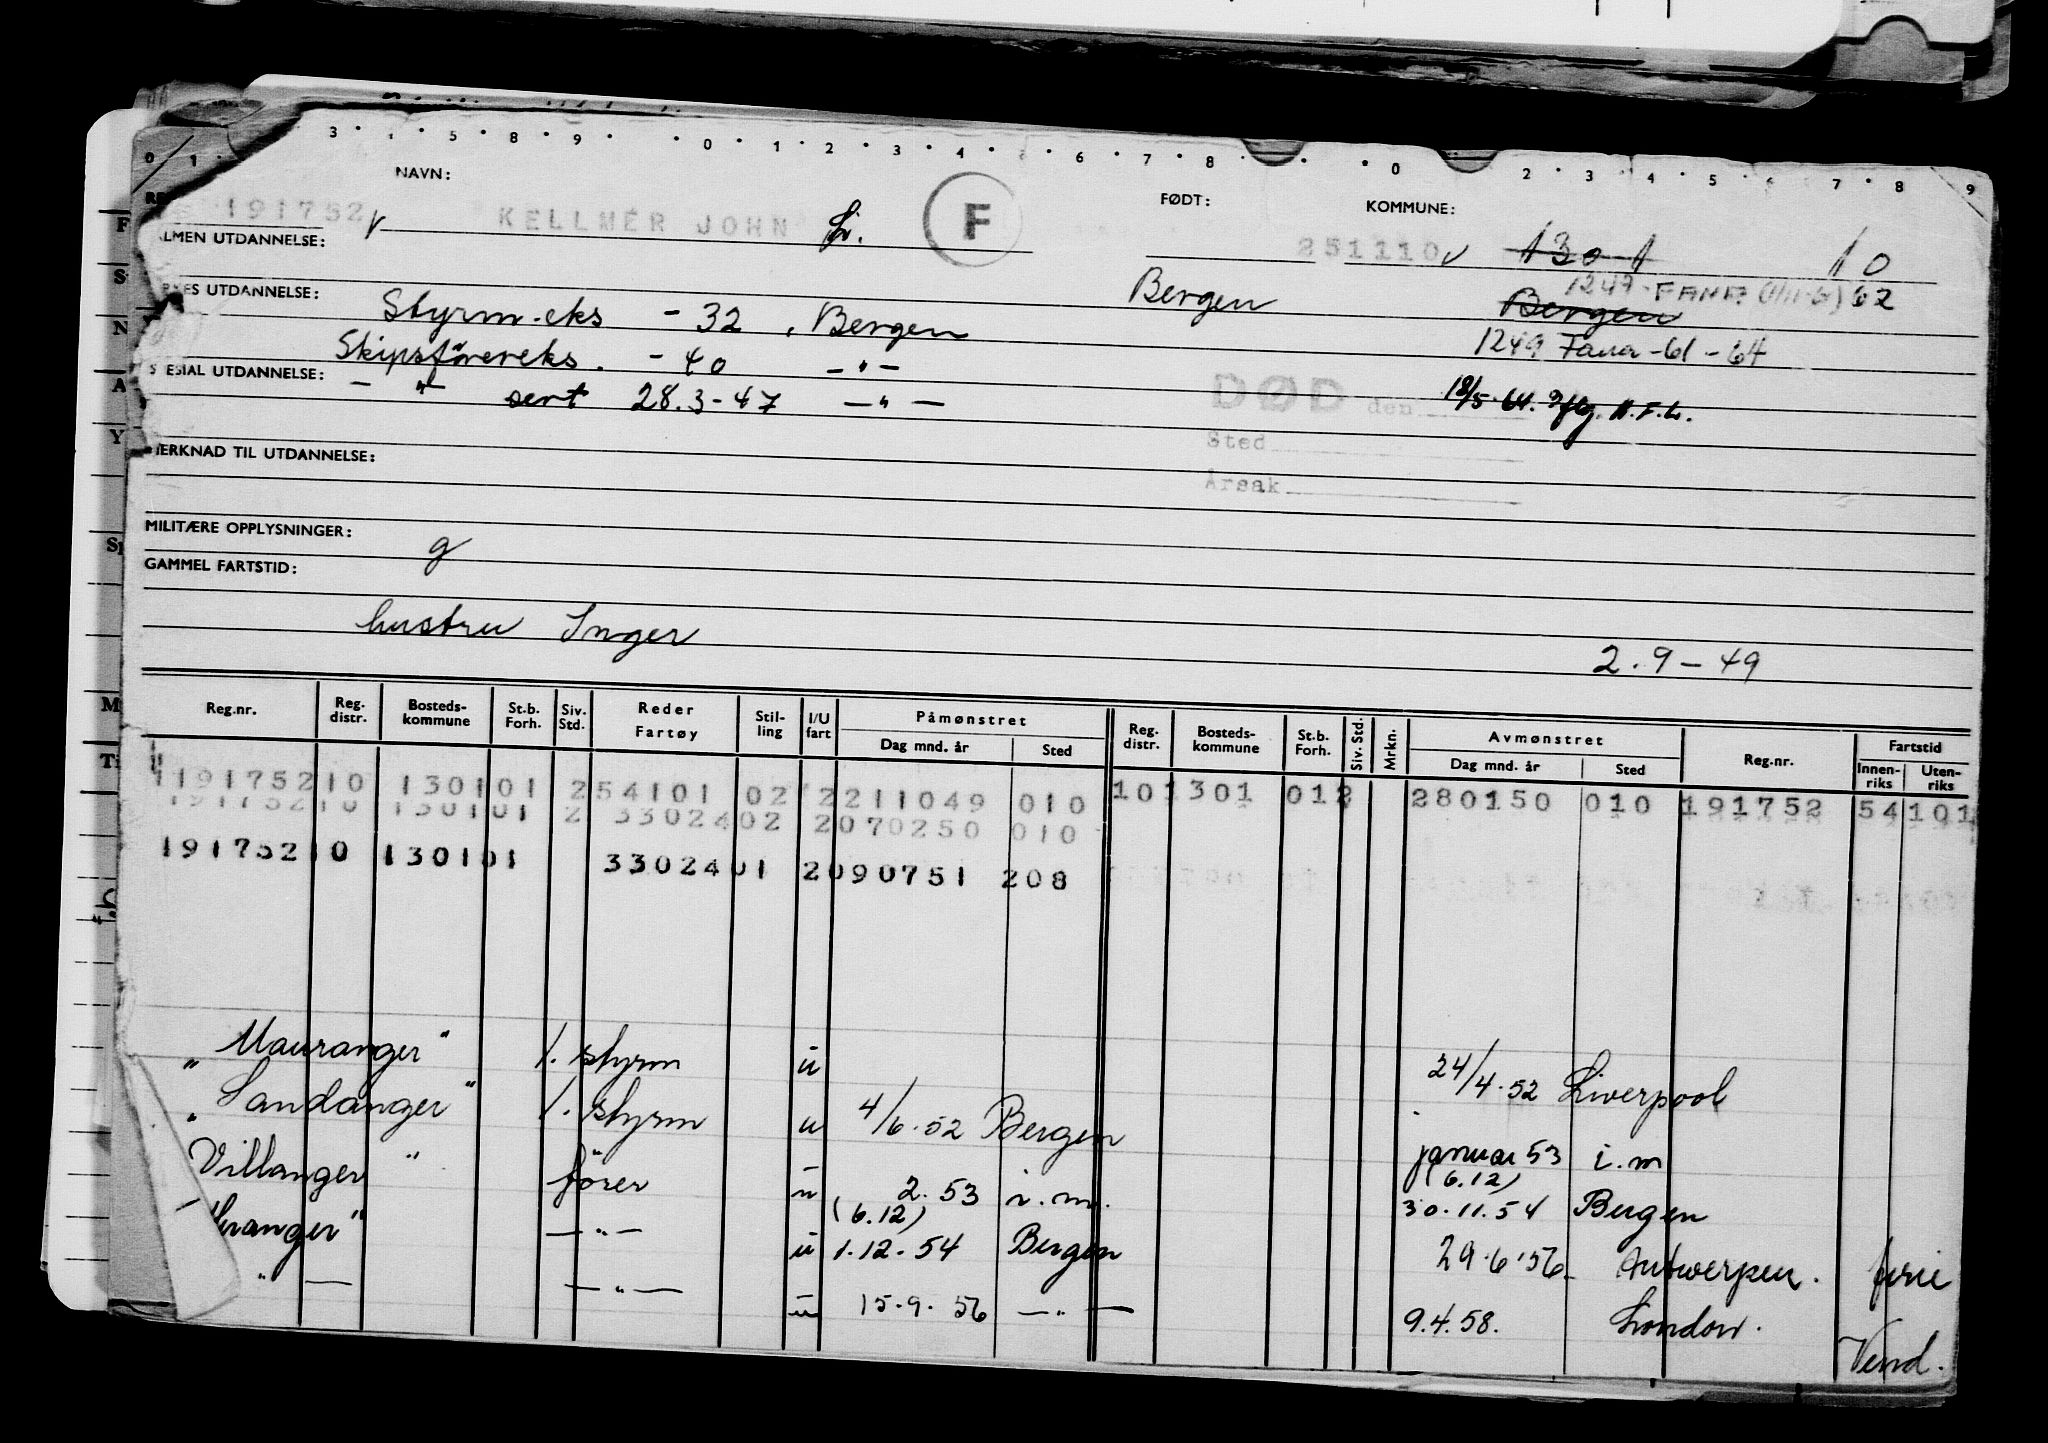 3 · 5 · 8 · 9 · 0 · 1 · 2 · 3 · 4 · 6 · 7 · 8 · 0 2 · 3 · 4 · 5 · 7 · 8 9
0 1
NAVN: FØDT: KOMMUNE:
191752 KELLMER JOHN F 251110 1301 10
UTDANNELSE:
Bergen 1247 - FANA 62
Bergen
UTDANNELSE: Styrm.eks - 32, Bergen
1249 Fana -61-64
Skipsförereks. - 40 - " -
SPESIAL UTDANNELSE: - " - sert 28.3-47 - " -
DØD den 18/5-64.
Sted
Årsak
MERKNAD TIL UTDANNELSE:
MILITÆRE OPPLYSNINGER: g
GAMMEL FARTSTID:
hustru Inger
2.9-49
Reg.nr. Reg. distr. Bosteds-kommune St.b. Forh. Siv. Std. Reder Fartøy Stil-ling I/U fart Påmønstret Dag mnd. år Sted Reg. distr. Bosteds-kommune St.b. Forh. Siv. Std. Mrkn. Avmønstret Dag mnd. år Sted Reg.nr. Fartstid Innen-riks Uten-riks
191752 10 1301 01 2 54101 02 2 211049 010 10 1301 01 2 280150 010 191752 54 101
191752 10 1301 01 2 33024 02 2 070250 010
191752 10 1301 01 33024 01 2 090751 208
"Mauranger" 1. styrm u 24/4.52 Liverpool
"Sandanger" 1. styrm u 4/6.52 Bergen januar 53 i.m
(6.12)
Villanger" förer u 2.53 i.m. 30.11.54 Bergen
(6.12)
- " - u 1.12.54 Bergen 29.6.56 Antwerpen. ferie
" — - " - u 15.9.56 - " - 9.4.58. London.
Vend.